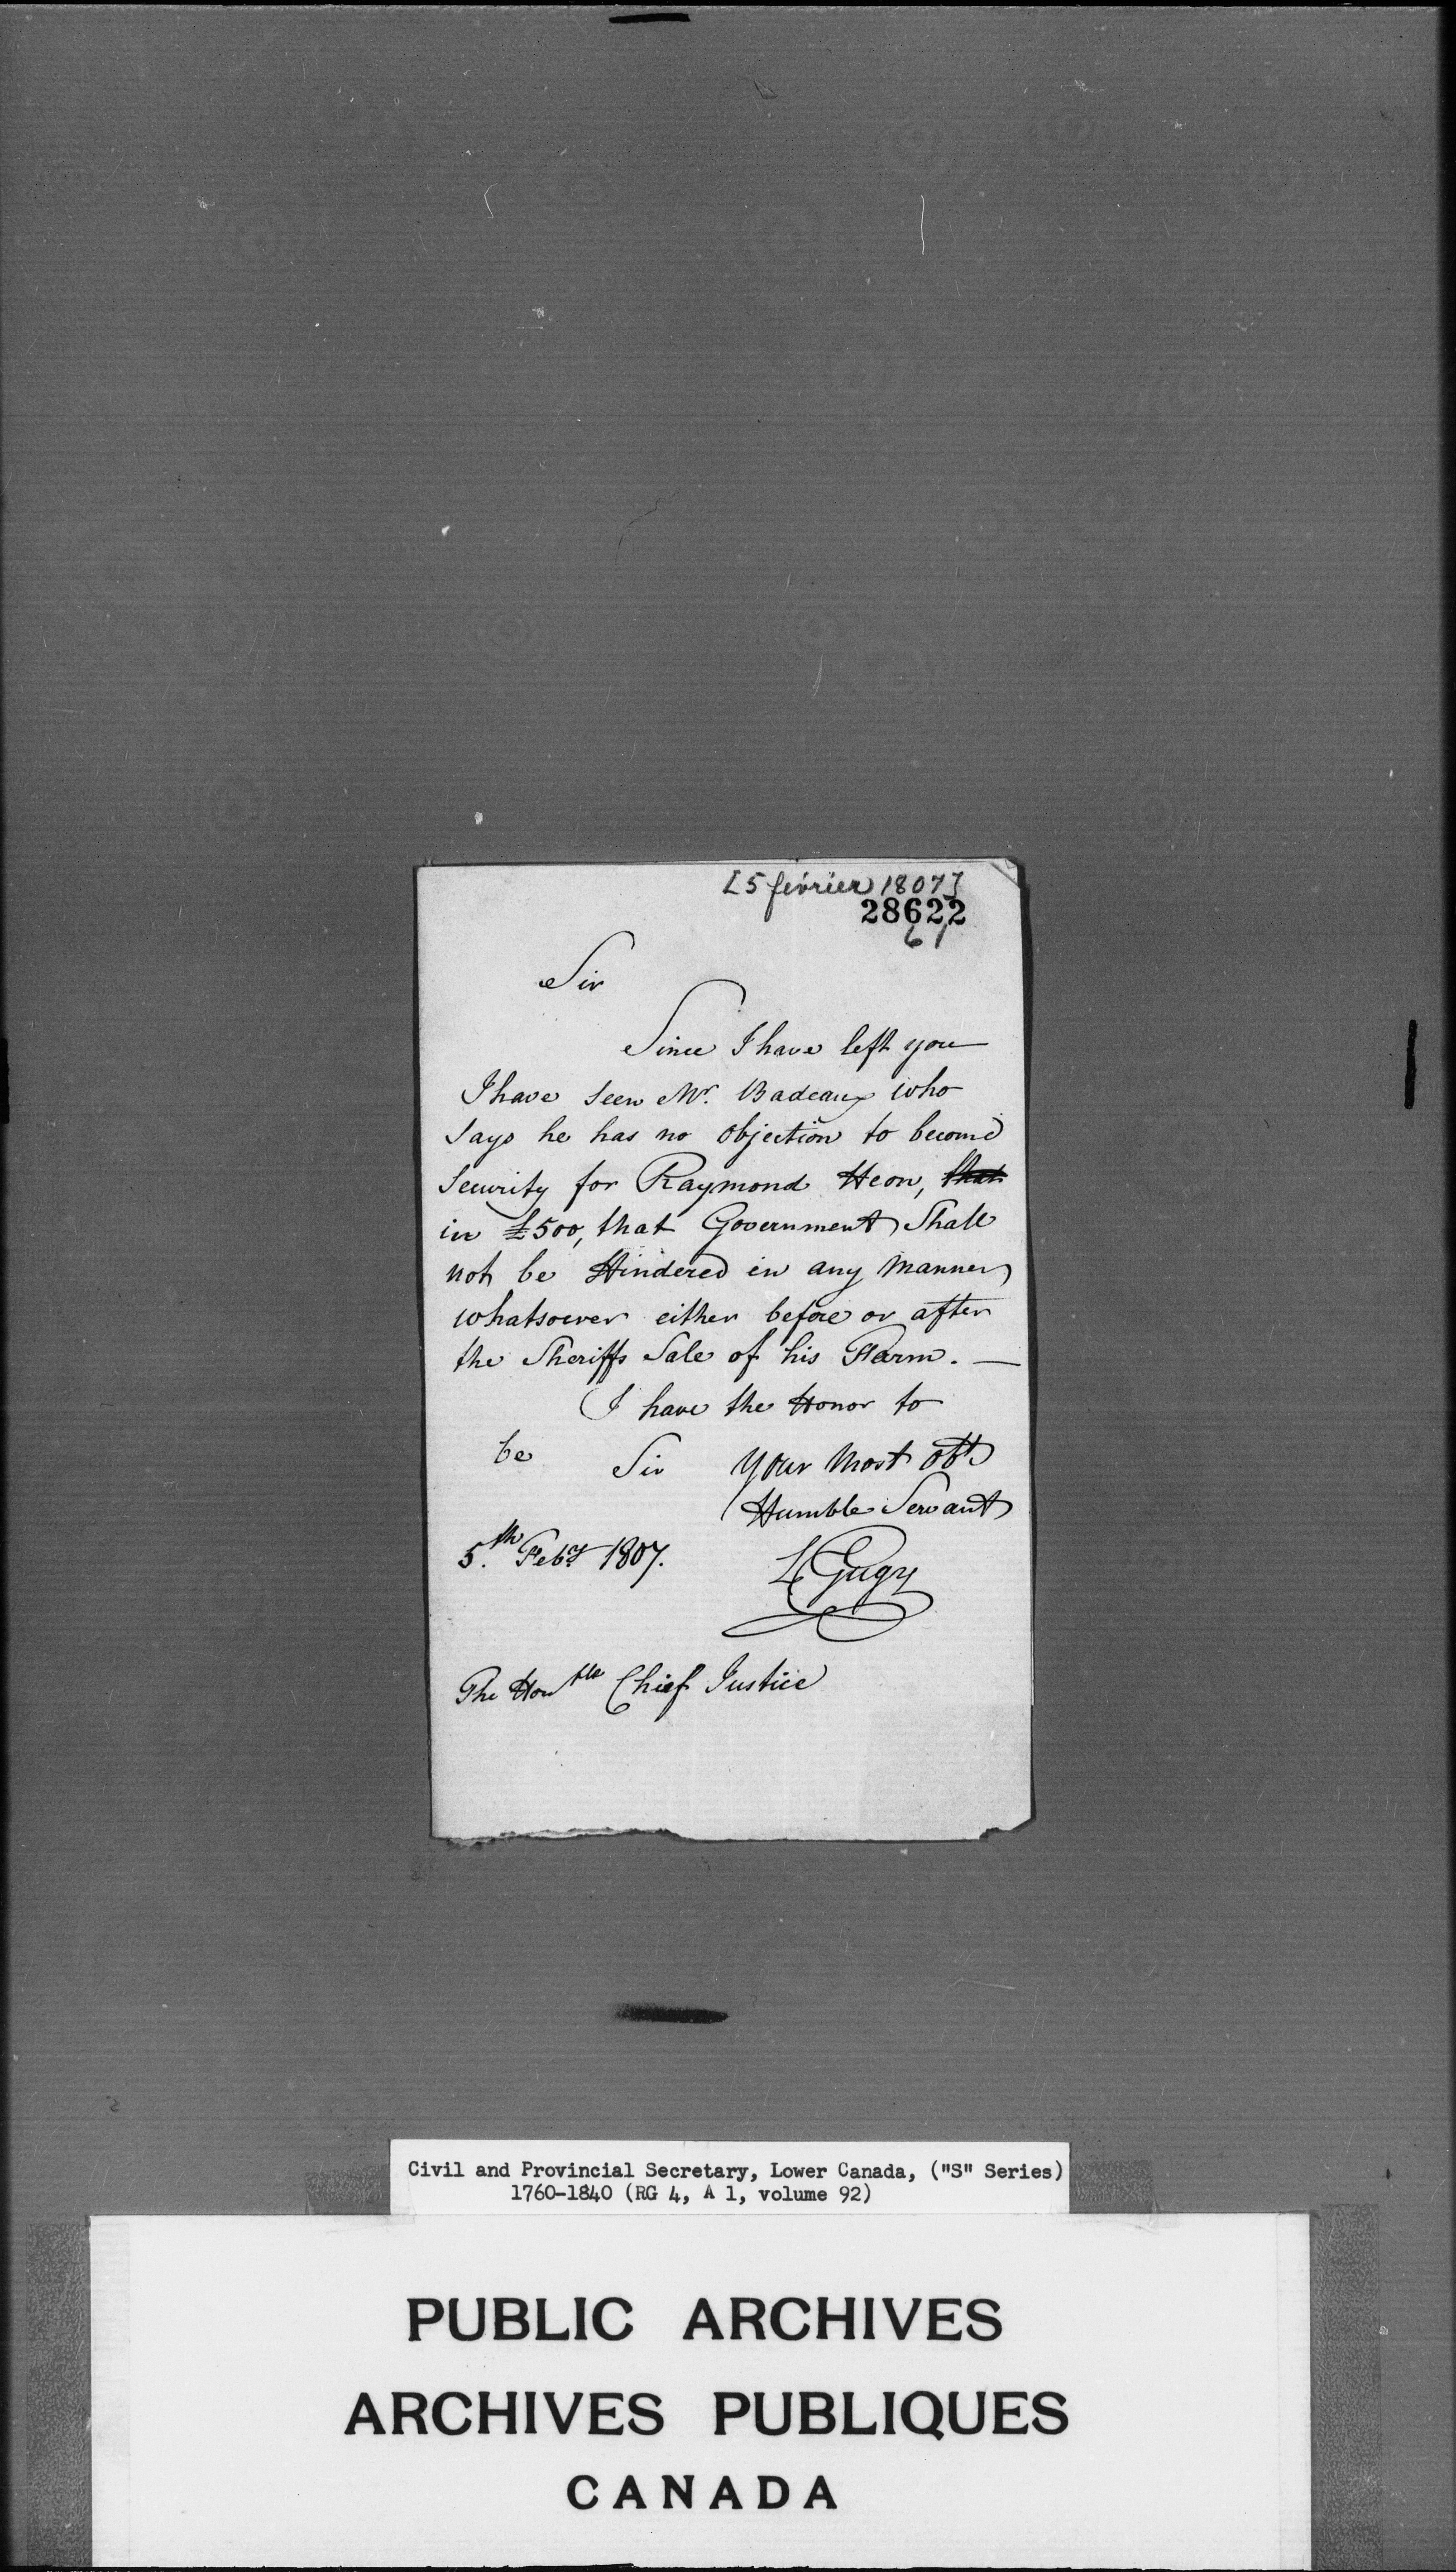 [5 février 1807]
28622
61
Sir
Since I have left you
I have seen Mr. Badeaux who
Says he has no objection to become
Security for Raymond Heon, that
in £500, that Government Shall
not be Hindered in any Manner
whatsoever either before or after
the Sheriffs Sale of his Farm. —
I have the Honor to
be Sir Your Most Obt
Humble Servant
5.th Feby 1807.
L Gugy
The Honble Chief Justice
Civil and Provincial Secretary, Lower Canada, ("S" Series)
1760-1840 (RG 4, A 1, volume 92)
PUBLIC ARCHIVES
ARCHIVES PUBLIQUES
CANADA